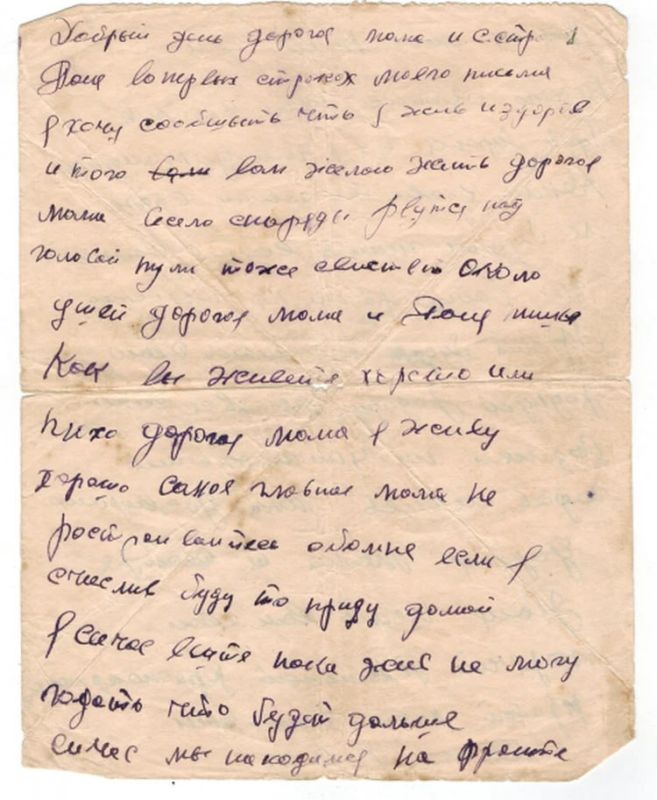 Добрый день дорогая мама и сестра
Тося во первых строках моего письма
я хочу сообщыть что я жив и здоров
и того вам желаю жить дорогая
мама весело снаряды рвутся над
головой пули тоже свистят около
ушей дорогая мама и Тося пишы
Как вы живете хорошо или
плохо дорогая мама я живу
хорошо самое главное мама не
расстраивайтесь обомне если я
счаслив буду то приду домой
я сичас видите пока жив не могу
гадать что будет дальше
сичас мы находимся на фронте